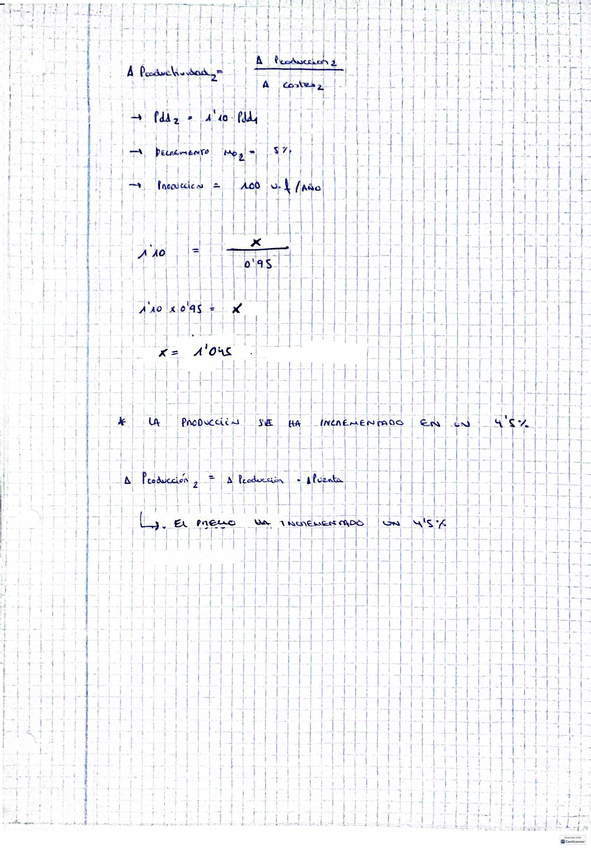 Δ Productividad₂ = Δ Producción₂
Δ costes₂
→ Pdd₂ = 1'10 Pdd₁
→ DECREMENTO MO₂ = 5%
→ PRODUCCIÓN = 100 u.f/AÑO
1'10 = x
0'95
1'10 x 0'95 = x
x = 1'045
* LA PRODUCCIÓN SE HA INCREMENTADO EN UN 4'5%
Δ Producción₂ = Δ Producción · Δ Pventa
↳ . EL PRECIO HA INCREMENTADO UN 4'5%
CamScanner